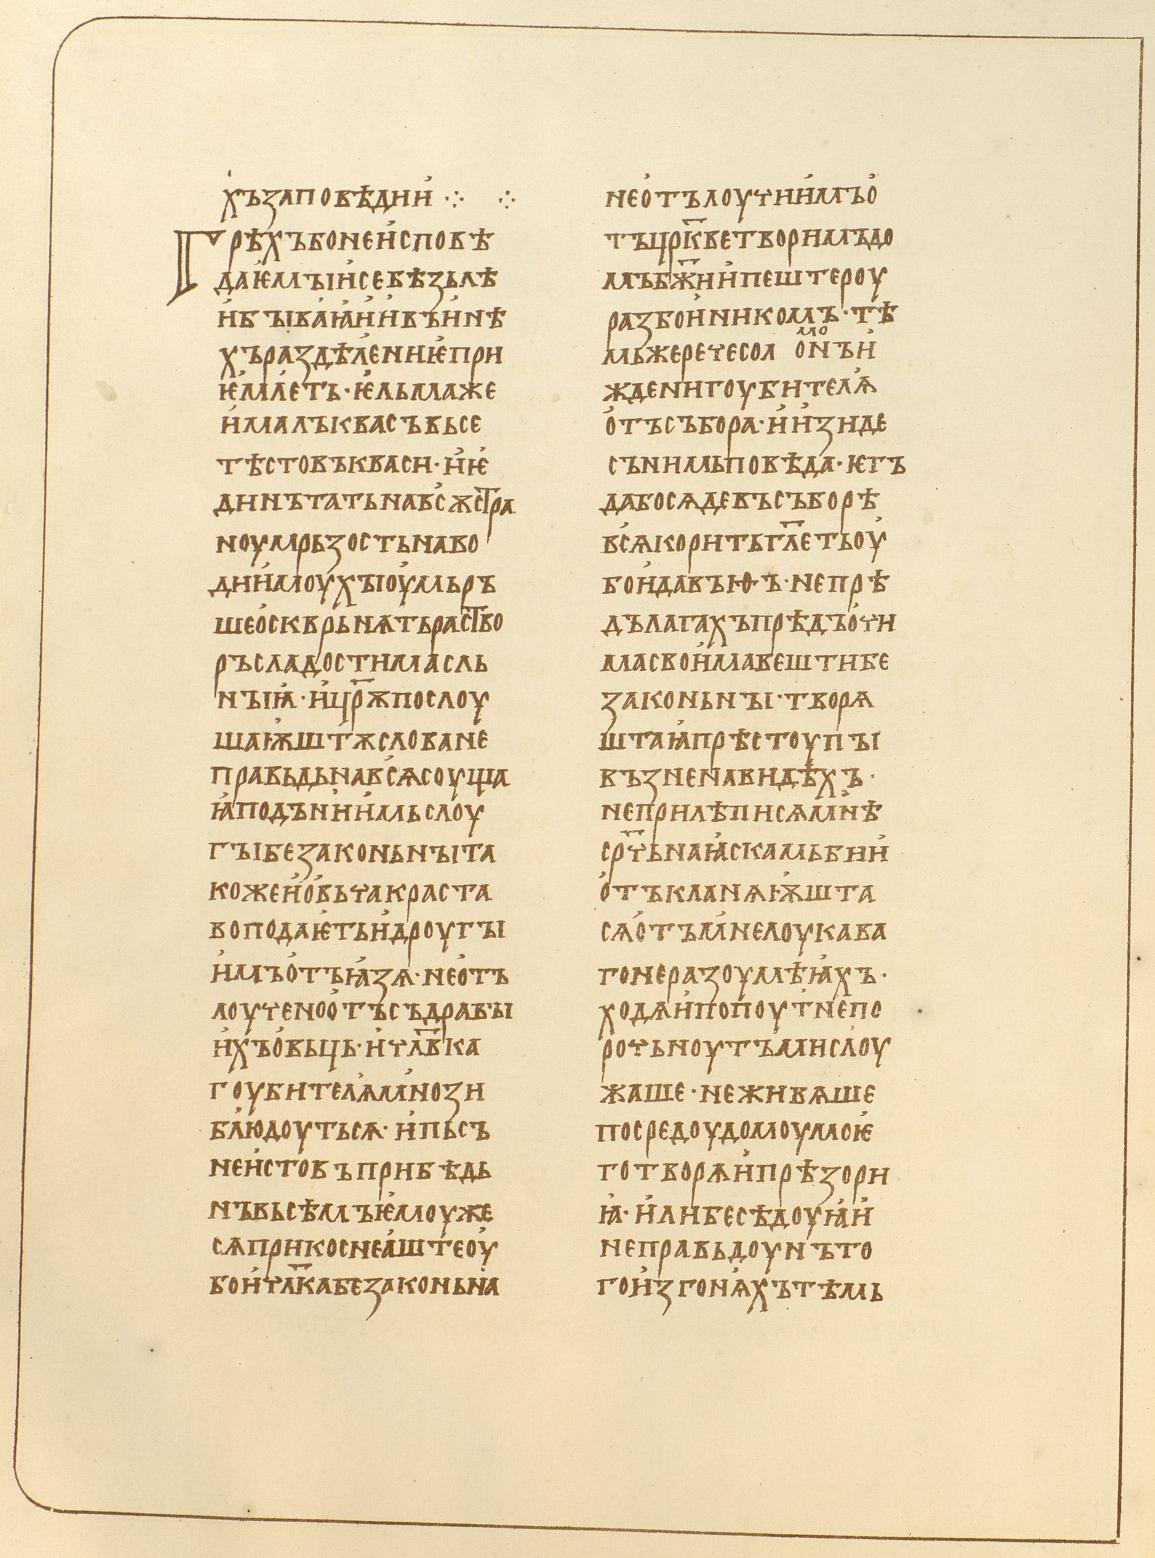 хъзаповѣдии҆ ⁘ ⁘
Грѣхъбонеи҆сповѣ
даѥ҆мъіи҆себѣзълѣ
и҆бъіваꙗ҆и҆и҆вѣи҆нѣ
хъраздѣл҄ениѥ҆при
ѥ҆мл҄етъ·ѥ҆льмаже
и҆малъіквасъвьсе
тѣстовъкваси·и҆ѥ҆
динътатьнавс҄ѫстра
ноумрьзостьнаво
дии҆моухъіоу҆мьръ
шео҆сквр҄ьнѧтьраство
ръсладостимасль
нъіѩ҆·и҆цр҃ѫпослоу
шаѭ҆штѫсловане
правьдьнавс҄ѧсоуща
ꙗ҆подън҄ии҆мьслоу
гъібезаконьнъіта
кожеи҆о҆вьчакраста
воподаѥ҆тьи҆дроугъі
и҆мъо҆тъꙗ҆зѧ·нео҆тъ
лоученоо҆тъсъдравъі
и҆хъо҆вьць·и҆чл҃вка
гоубител҄ѧмнози
бл҄юдоутьсѧ·и҆пьсъ
неи҆стовъприбѣдь
нъвьсѣмъѥ҆моуже
сѧприкоснеа҆штеоу҆
бои҆чл҃кабезаконьна
нео҆тълоучии҆мъо҆
тъцр҃кветворимъдо
мъбж҃ии҆пештероу
разбои҆никомъ·тѣ
мьжеречесол о҆нъи҆
мо
ждениgоубител҄ѧ
о҆тъсъбора·и҆и҆зиде
сънимьповѣда·ѥгъ
дабосѧдевъсъборѣ
вс҄ѧкоритьгл҃етьоу҆
бои҆давъіѳ҆ъ·непрѣ
дълагахъпрѣдъо҆чи
масвои҆мавештибе
законьнъі·творѧ
штаѩ҆прѣстоупъі
възненавидѣхъ·
неприлѣписѧмн҄ѣ
ср҃чьнаꙗ҆скамьбии҆
о҆тъкланѧѭ҆шта
сѧо҆тъмнелоукава
гонеразоумѣꙗ҆хъ·
ходѧи҆попоутн҄епо
рочьноутъмислоу
жаше·неживѧше
посредоудомоумоѥ҆
готворѧи҆прѣзори
ꙗ҆·и҆либесѣдоуꙗ҆и҆
неправьдоунъто
гои҆згон҄ѧхътѣмь